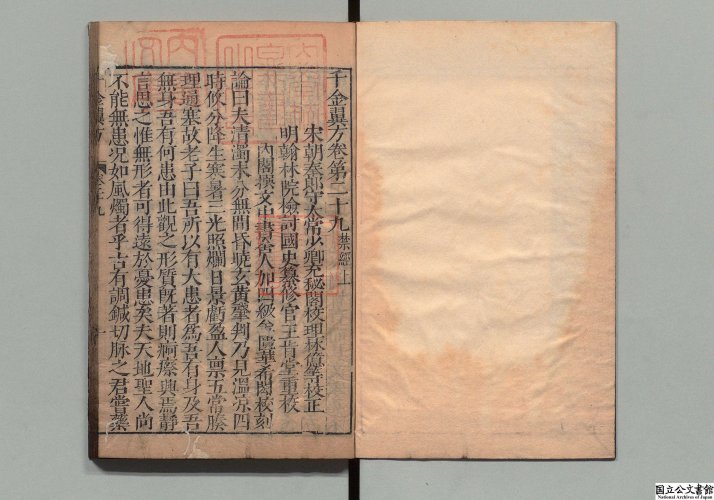 千金翼方卷第二十九 禁經上
宋朝奉郎守太常少卿充秘閣校理林億等校正
明翰林院檢討國史纂修官王肯堂重校
內閣撰文中書舍人加四級 虞華希閎校刻
論曰夫清濁未分無聞昏曉玄黃肇判乃見溫涼四
時攸分降生寒暑三光照爛日景虧盈人禀五常勝
理通塞故老子曰吾所以有大患者為吾有身及吾
無身吾有何患由此觀之形質既著則痾瘵興焉靜
言思之惟無形者可得遠於憂患矣夫天地聖人尚
不能無患况如風燭者乎古有調鍼切脉之君嘗藥
千金翼方 卷二十九 一
国立公文書館
National Archives of Japan